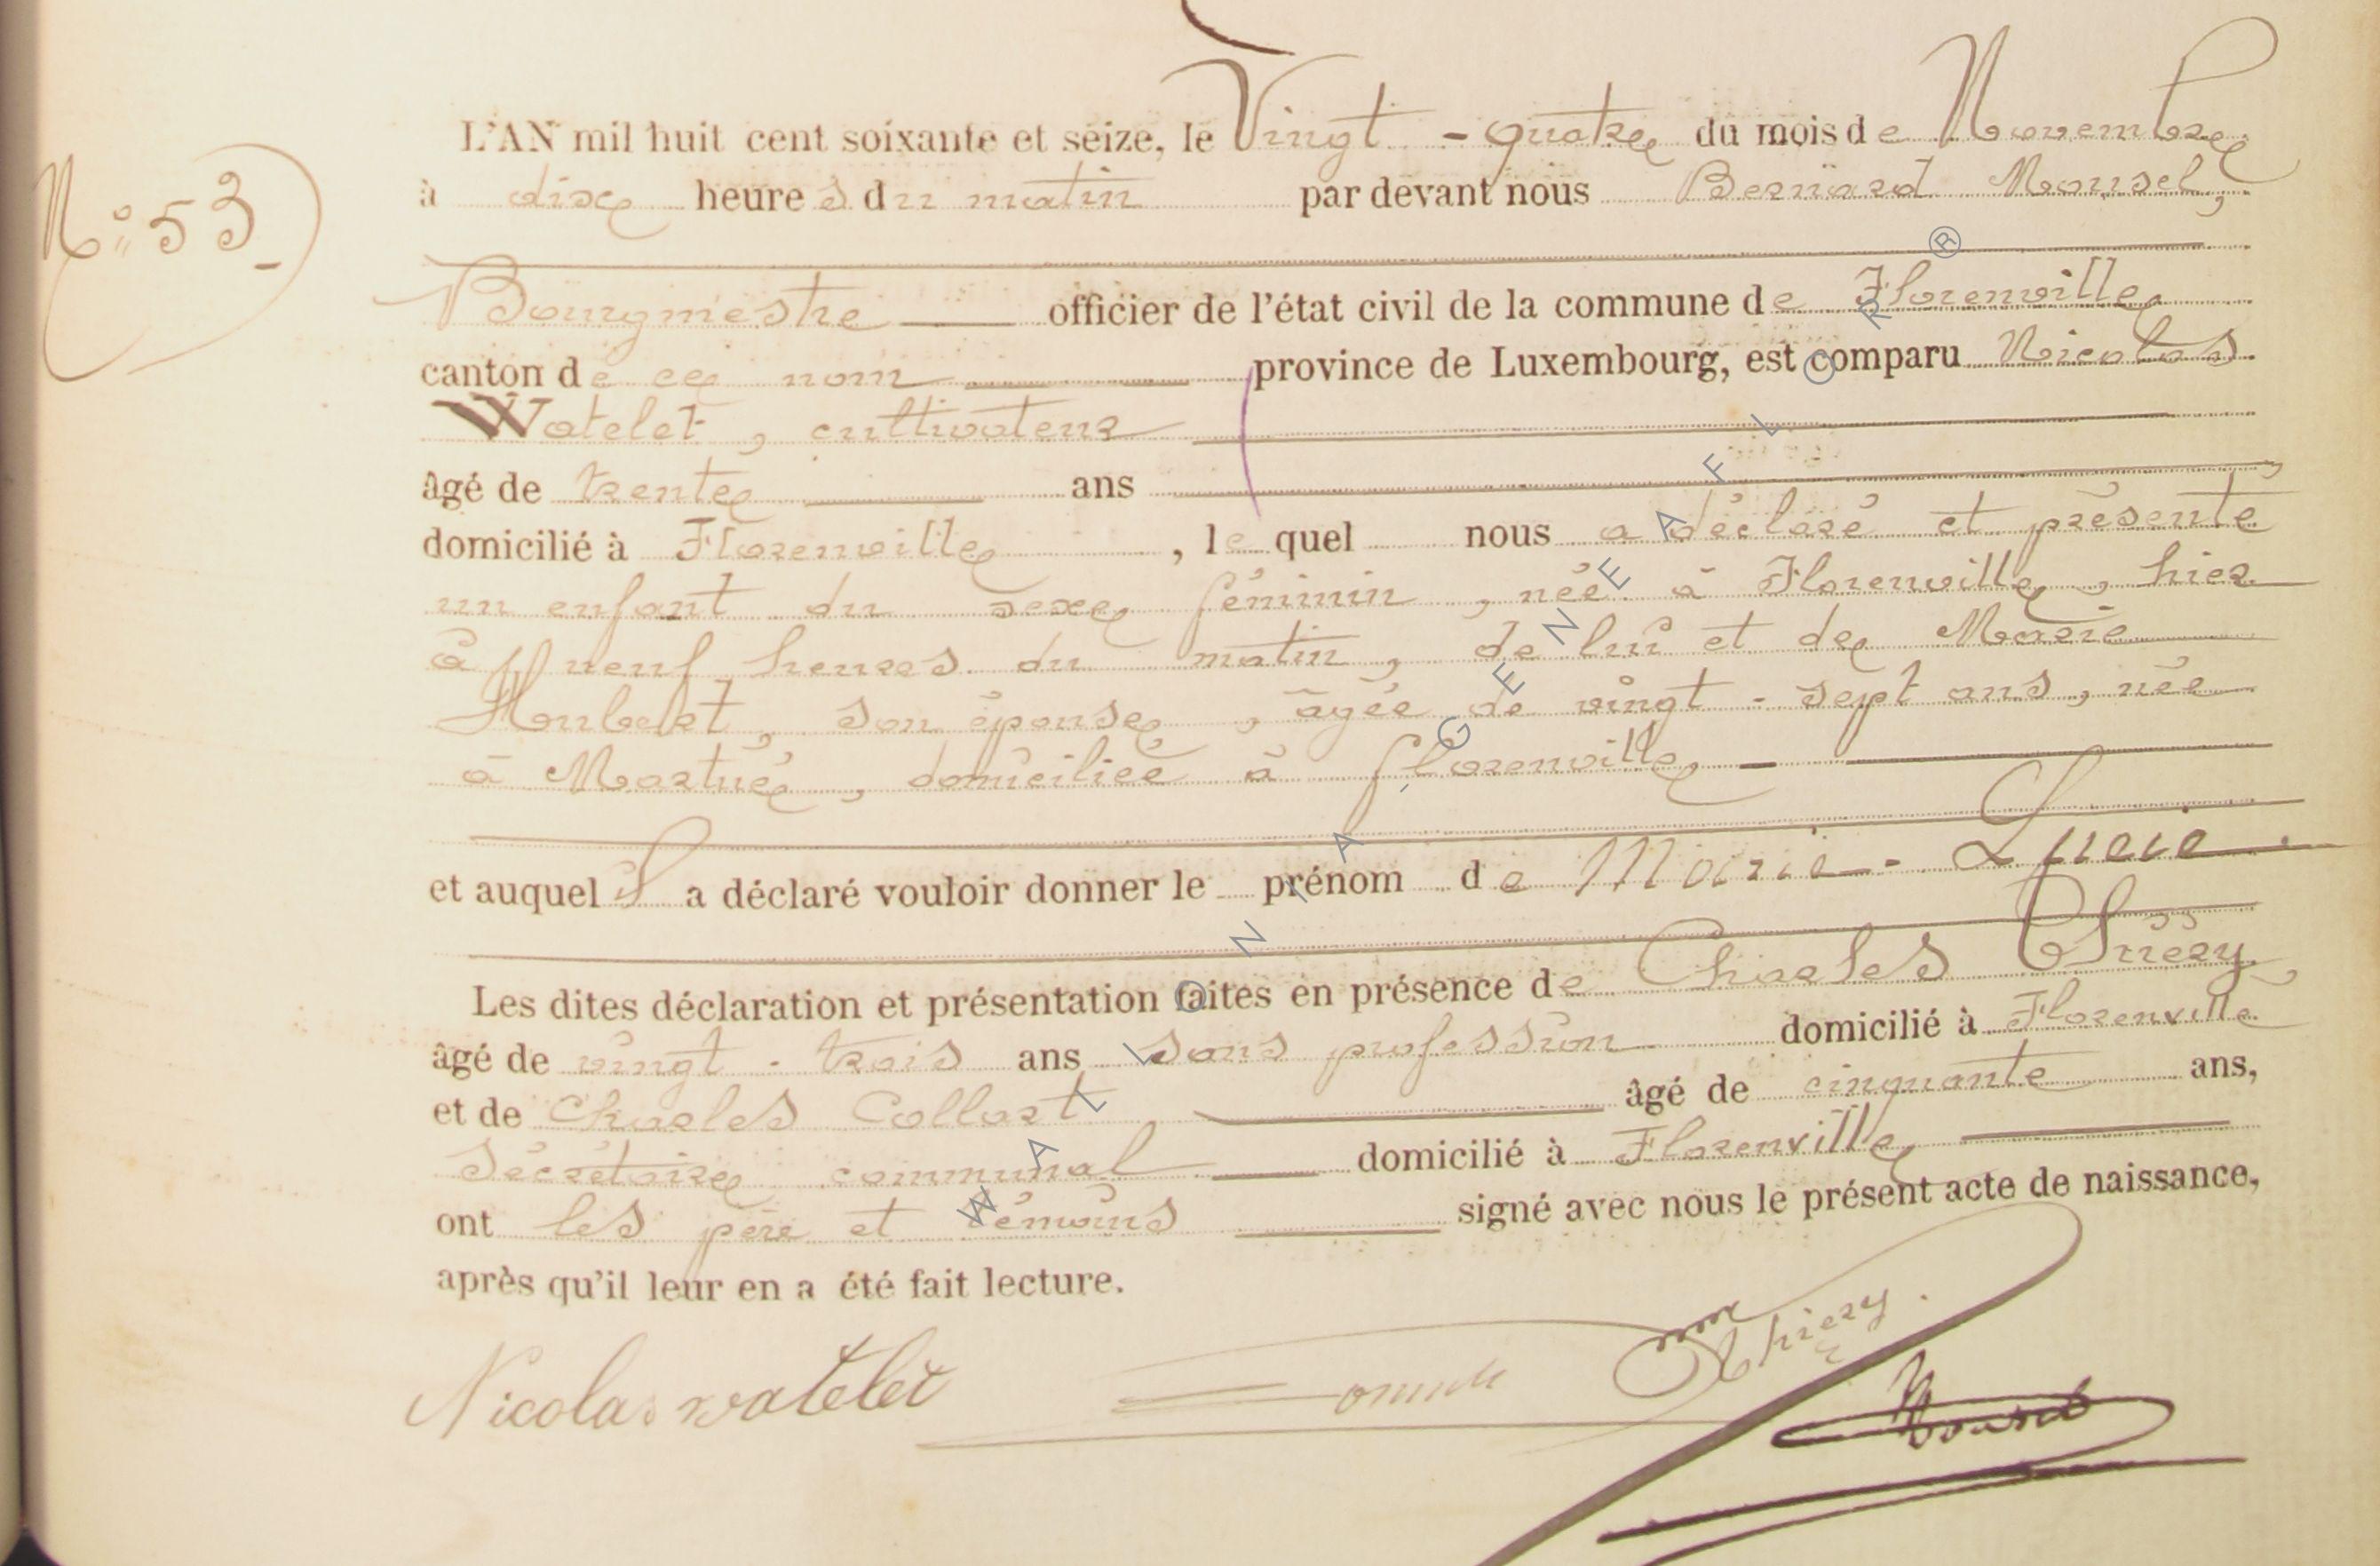 L'AN mil huit cent soixante et seize, le Vingt - quatre du mois de Novembre
N° 53
à dix heures du matin par devant nous Bernard Mousel,
Bourgmestre officier de l'état civil de la commune de Florenville
canton de ce nom province de Luxembourg, est comparu Nicolas
Watelet, cultivateur
âgé de trente ans
domicilié à Florenville, lequel nous a déclaré et présenté
un enfant du sexe féminin, née à Florenville, hier
à neuf heures du matin, de lui et de Marie
Houbert, son épouse, âgée de vingt-sept ans, née
à Martué, domiciliée à florenville,
et auquel il a déclaré vouloir donner le prénom de Marie-Lucie.
Les dites déclaration et présentation faites en présence de Charles Thiéry
âgé de vingt-trois ans sans profession domicilié à Florenville
et de Charles Collart âgé de cinquante ans,
Sécrétaire communal domicilié à Florenville,
ont les père et témoins signé avec nous le présent acte de naissance,
après qu'il leur en a été fait lecture.
Nicolas watelet Thiery
Mousel
WALLONIA - GENEAFLCOR ®